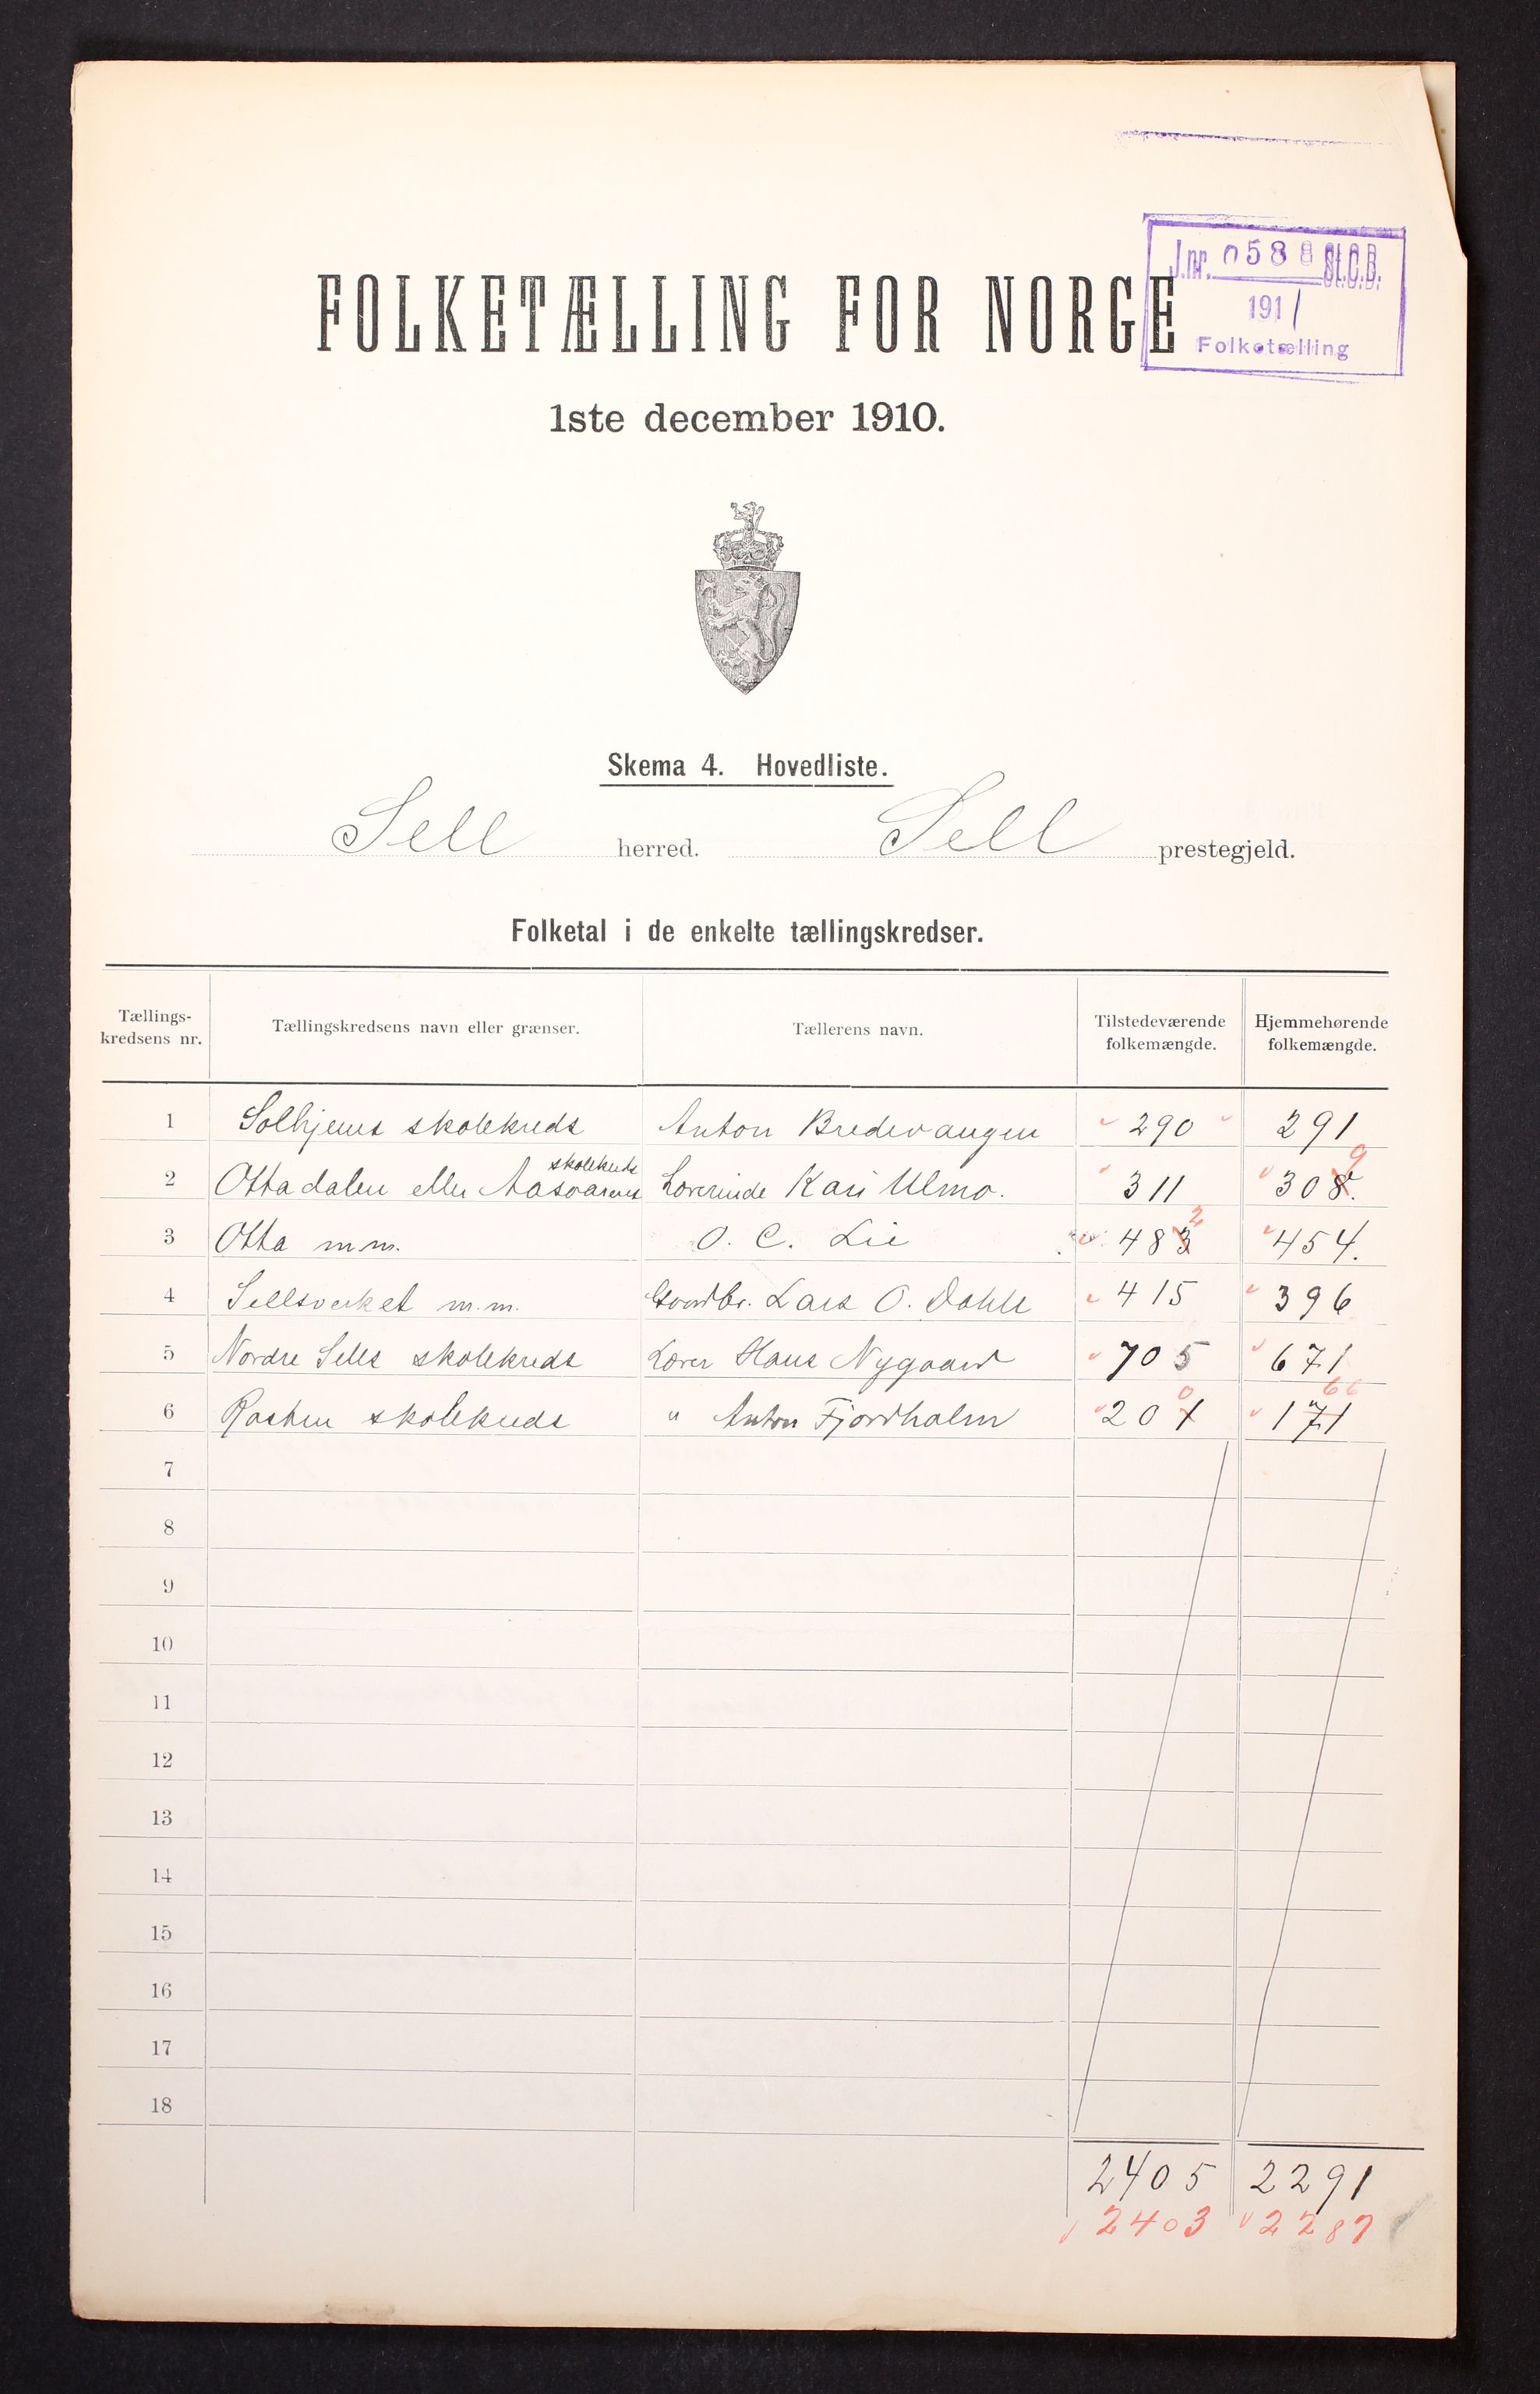 J.nr. 0588 St.C.B.
1911
Folketælling
FOLKETÆLLING FOR NORGE
1ste december 1910.
Skema 4. Hovedliste.
Sell herred. Sell prestegjeld.
Folketal i de enkelte tællingskredser.
Tællings-kredsens nr. Tællingskredsens navn eller grænser. Tællerens navn. Tilstedeværende folkemængde. Hjemmehørende folkemængde.
1 Solhjems skolekreds Anton Bredevangen 290 291
2 Ottadalen eller Aasoarens skolekreds Lærerinde Kari Ulmo. 311 308. 9
3 Otta m.m. O. C. Lie 483 2 454.
4 Sellsverket m.m. Gaardbr. Lars O. Dahle 415 396
5 Nordre Sells skolekreds Lærer Hans Nygaard 705 671
6 Rosten skolekreds " Anton Fjordholm 201 0 171 66
7
8
9
10
11
12
13
14
15
16
17
18
2405 2291
2403 2287